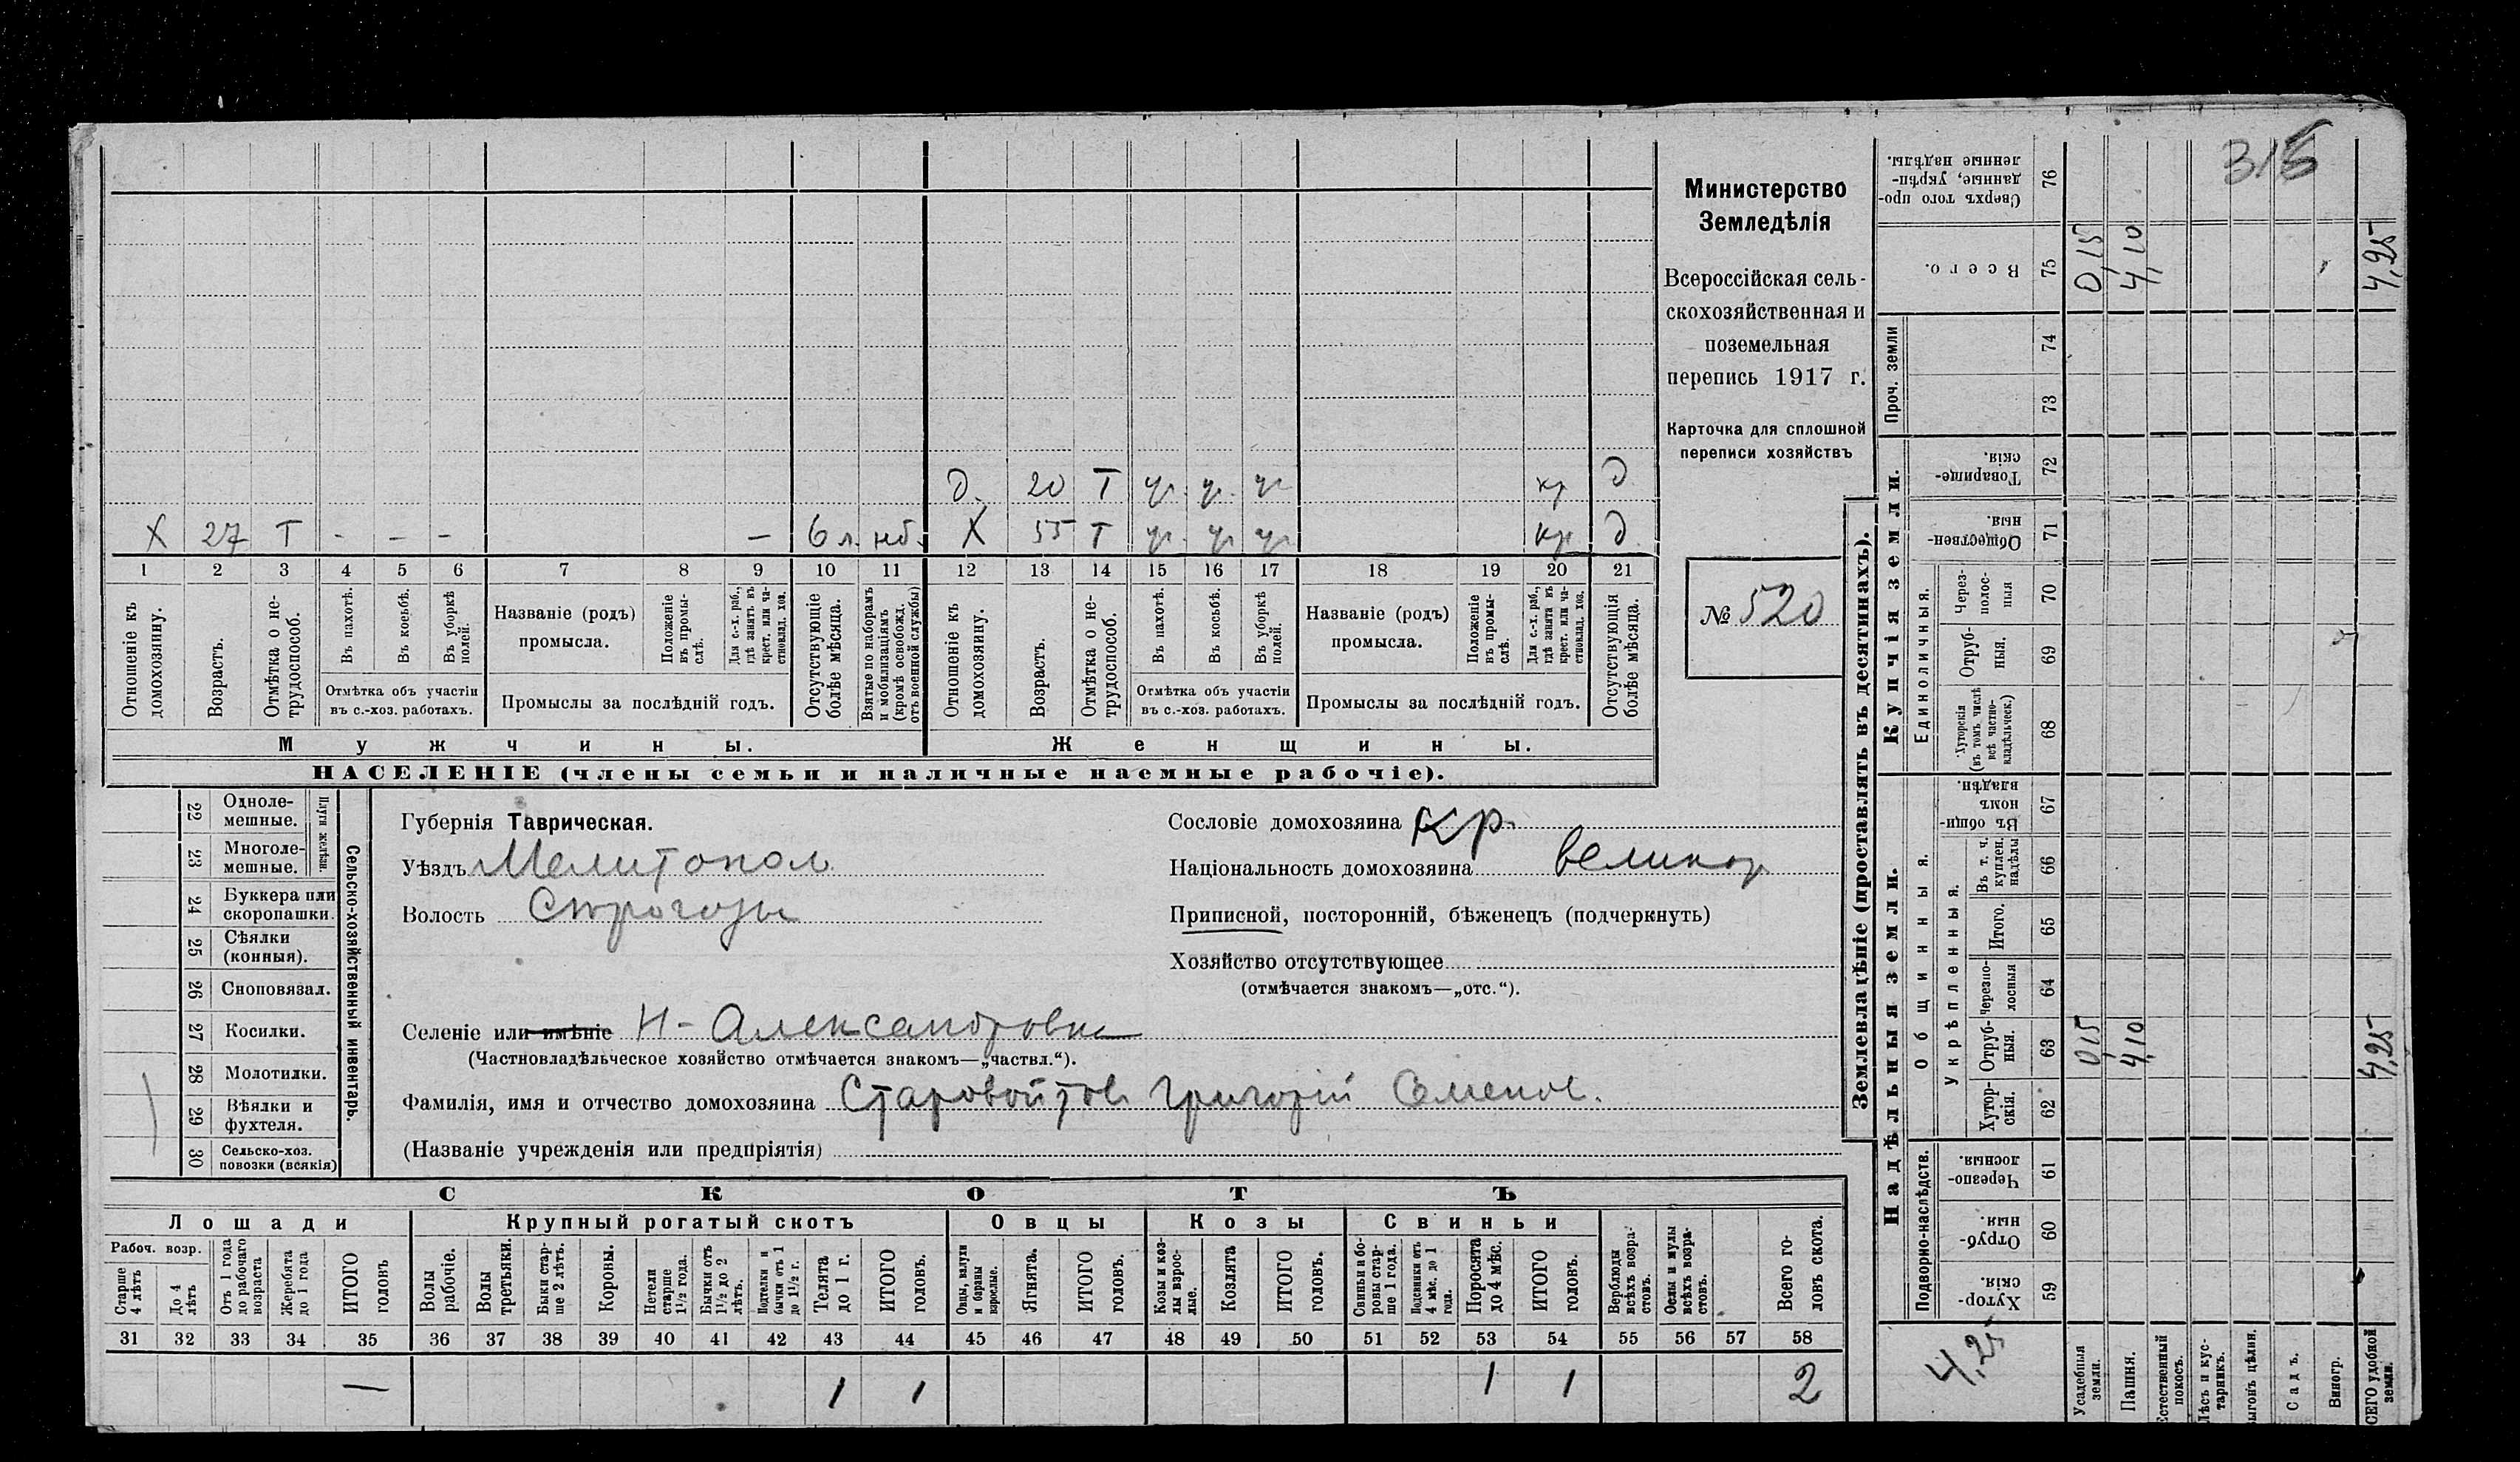 315
Министерство
Земледѣлія
Всероссійская сель-
скохозяйственная и
поземельная
перепись 1917 г.
Карточка для сплошной
переписи хозяйствъ
№ 520
д. 20 Т ч. ч. ч. кр д
Х 27 Т - - - — 6 л. нб. Х 55 Т ч. ч. ч. кр д
1 2 3 4 5 6 7 8 9 10 11 12 13 14 15 16 17 18 19 20 21
Отношеніе къ домохозяину.
Возрастъ.
Отмѣтка о не-трудоспособ.
Въ пахотѣ.
Въ косьбѣ.
Въ уборкѣ полей.
Отмѣтка объ участіи
въ с.-хоз. работахъ.
Названіе (родъ)
промысла.
Положеніе въ промы-слѣ.
Для с.-х. раб., гдѣ занятъ въ крест. или ча-стновлад. хоз.
Промыслы за послѣдній годъ.
Отсутствующіе болѣе мѣсяца.
Взятые по наборамъ и мобилизаціямъ (кромѣ освобожд. отъ военной службы)
Отношеніе къ домохозяину.
Возрастъ.
Отмѣтка о не-трудоспособ.
Въ пахотѣ.
Въ косьбѣ.
Въ уборкѣ полей.
Отмѣтка объ участіи
въ с.-хоз. работахъ.
Названіе (родъ)
промысла.
Положеніе въ промы-слѣ.
Для с.-х. раб., гдѣ занята въ крест. или ча-стновлад. хоз.
Промыслы за послѣдній годъ.
Отсутствующія болѣе мѣсяца.
Мужчины. Женщины.
НАСЕЛЕНІЕ (члены семьи и наличные наемные рабочіе).
22 Одноле-мешные.
23 Многоле-мешные.
Плуги желѣзн.
24 Буккера или скоропашки.
25 Сѣялки (конныя).
26 Сноповязал.
27 Косилки.
28 Молотилки.
29 Вѣялки и фухтеля.
30 Сельско-хоз. повозки (всякія)
Сельско-хозяйственный инвентарь.
Губернія Таврическая.
Уѣздъ Мелитопол.
Волость Строгозы
Селеніе или имѣніе Н-Александровка
(Частновладѣльческое хозяйство отмѣчается знакомъ—„частвл.“).
Фамилія, имя и отчество домохозяина Старовойтов Григорій Семенов.
(Названіе учрежденія или предпріятія)
Сословіе домохозяина Кр.
Національность домохозяина великор
Приписной, посторонній, бѣженецъ (подчеркнуть)
Хозяйство отсутствующее
(отмѣчается знакомъ—„отс.“).
СКОТЪ
Лошади Крупный рогатый скотъ Овцы Козы Свиньи
Рабоч. возр.
Старше 4 лѣтъ
До 4 лѣтъ
Отъ 1 года до рабочаго возраста
Жеребята до 1 года
ИТОГО головъ
Волы рабочіе.
Волы третьяки.
Быки стар-ше 2 лѣтъ.
Коровы.
Нетели старше 1½ года.
Бычки отъ 1½ до 2 лѣтъ.
Подтелки и бычки отъ 1 до 1½ г.
Телята до 1 г.
ИТОГО головъ.
Овцы, валухи и бараны взрослые.
Ягнята.
ИТОГО головъ.
Козы и коз-лы взрос-лые.
Козлята
ИТОГО головъ.
Свиньи и бо-ровы стар-ше 1 года.
Подсвинки отъ 4 мѣс. до 1 года.
Поросята до 4 мѣс.
ИТОГО головъ.
Верблюды всѣхъ возра-стовъ.
Ослы и мулы всѣхъ возра-стовъ.
Всего го-ловъ скота.
31 32 33 34 35 36 37 38 39 40 41 42 43 44 45 46 47 48 49 50 51 52 53 54 55 56 57 58
— 1 1 1 1 2
Землевладѣніе (проставлять въ десятинахъ).
Купчія земли.
Надѣльныя земли.
Сверхъ того про-данные, укрѣп-ленные надѣлы. 76
Всего. 75 0,15 4,10 4,25
Проч. земли 74 73
Товарище-скія. 72
Обществен-ныя. 71
Единоличныя.
Через-полос-ныя 70
Отруб-ныя. 69
Хуторскія (въ томъ числѣ всѣ частно-владѣльческ.) 68
Общинныя.
Въ общи-номъ владѣн. 67
Укрѣпленныя.
Въ т. ч. куплен. надѣлы 66
Итого. 65
Черезпо-лосныя 64
Отруб-ныя. 63 0,15 4,10 4,25
Хутор-скія. 62
Подворно-наслѣдств.
Черезпо-лосныя. 61
Отруб-ныя. 60
Хутор-скія. 59
4,25
Усадебныя земли.
Пашня.
Естественный покосъ.
Лѣсъ и кус-тарникъ.
ыгонъ цѣлин.
Садъ.
Виногр.
СЕГО удобной земли.